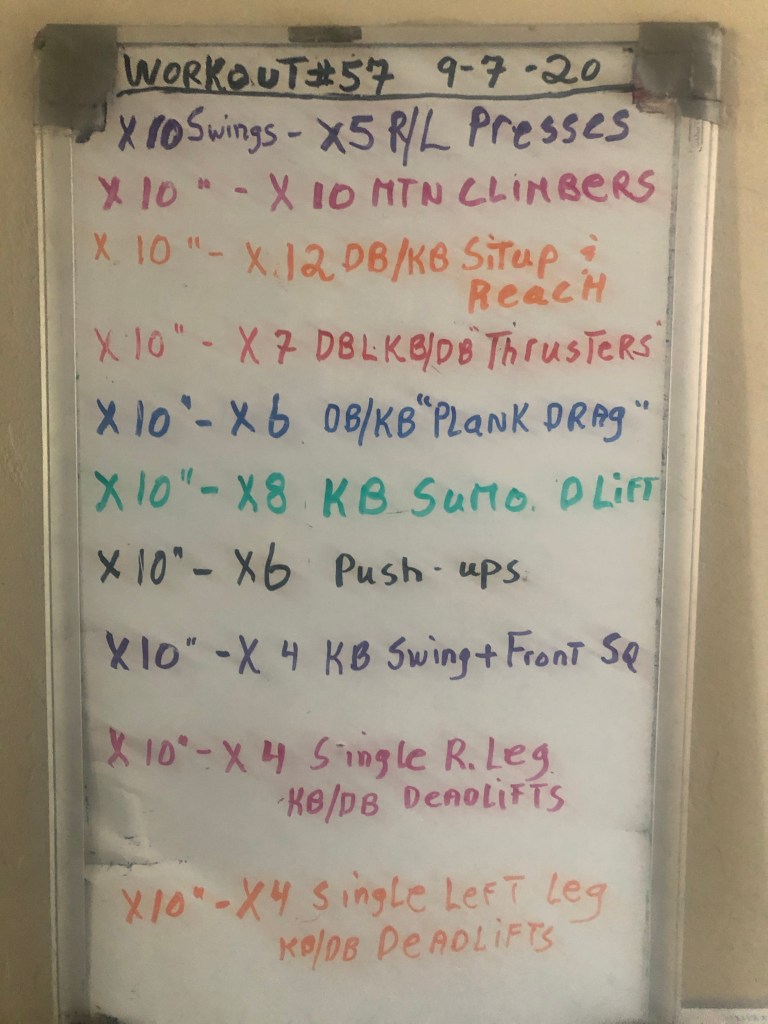 WORKOUT #57 9-7-20
X10 Swings - X5 R/L Presses
X 10 " - X 10 MTN CLIMBERS
X 10 " - X 12 DB/KB Situp &
Reach
X 10 " - X 7 DBL KB/DB "Thrusters"
X 10 " - X 6 DB/KB "PLANK DRAg"
X 10 " - X8 KB Sumo. D LiFT
X 10 " - X6 Push-ups
X 10 " - X 4 KB Swing + Front SQ
X 10 " - X 4 Single R. Leg
KB/DB DEADLiFTS
X10 " - X4 Single LeFT Leg
KB/DB DEADLIFTS